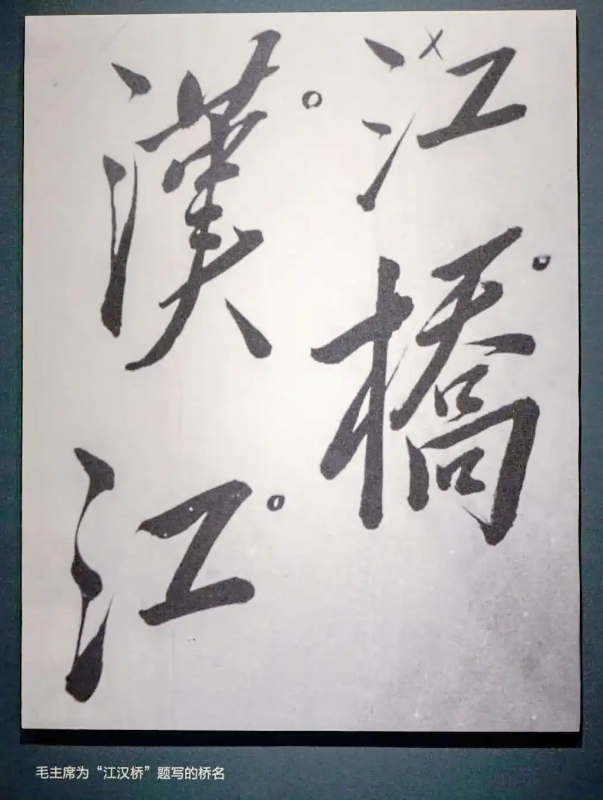 江橋
漢江
毛主席为“江汉桥”题写的桥名